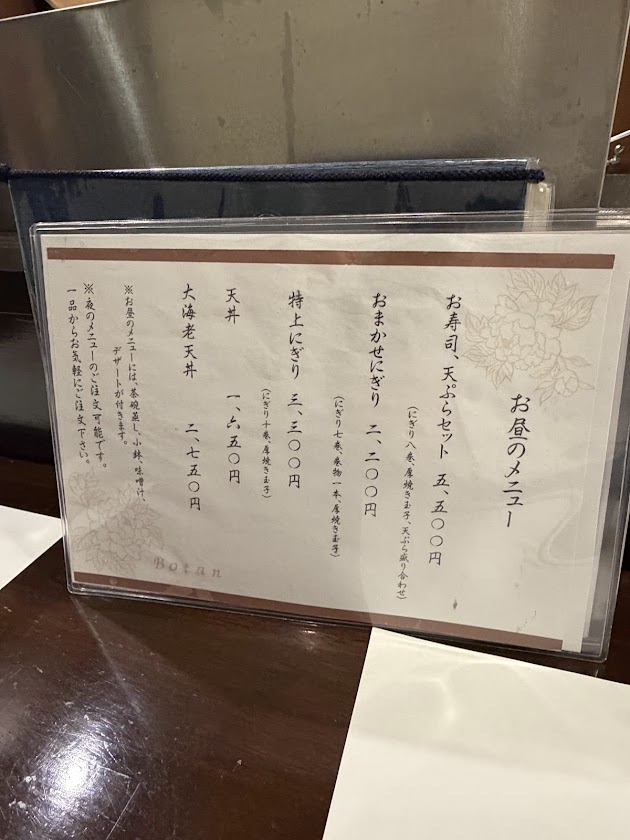 お昼のメニュー
お寿司、天ぷらセット 五、五〇〇円
(にぎり八巻、厚焼き玉子、天ぷら盛り合わせ)
おまかせにぎり 二、二〇〇円
(にぎり七巻、巻物一本、厚焼き玉子)
特上にぎり 三、三〇〇円
(にぎり十巻、厚焼き玉子)
天丼 一、六五〇円
大海老天丼 二、七五〇円
※お昼のメニューには、茶碗蒸し、小鉢、味噌汁、
デザートが付きます。
※夜のメニューのご注文可能です。
一品からお気軽にご注文下さい。
Botan